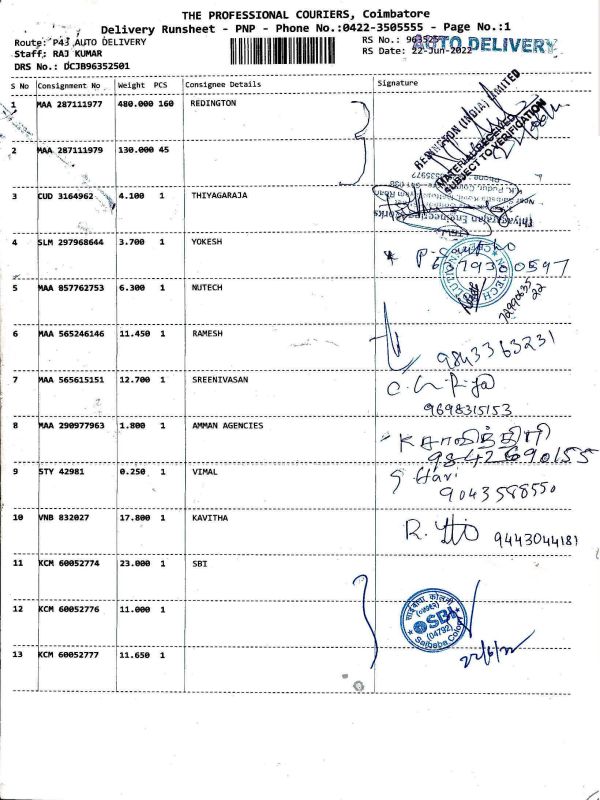 THE PROFESSIONAL COURIERS, Coimbatore
Delivery Runsheet - PNP - Phone No.:0422-3505555 - Page No.:1
Route: P43 AUTO DELIVERY
RS No.: 963525
AUTO DELIVERY
Staff: RAJ KUMAR
RS Date: 22-Jun-2022
DRS No.: DCJB96352501
S No Consignment No Weight PCS Consignee Details Signature
1 MAA 287111977 480.000 160 REDINGTON
REDINGTON (INDIA) LIMITED
MATERIAL RECEIVED
SUBJECT TO VERIFICATION
2 MAA 287111979 130.000 45
3 CUD 3164962 4.100 1 THIYAGARAJA
4 SLM 297968644 3.700 1 YOKESH
637930 0597
5 MAA 857762753 6.300 1 NUTECH
6 MAA 565246146 11.450 1 RAMESH
9843363231
7 MAA 565615151 12.700 1 SREENIVASAN
9698315153
8 MAA 290977963 1.800 1 AMMAN AGENCIES
9842690155
9 STY 42981 0.250 1 VIMAL
S Hari
9043588550
10 VNB 832027 17.800 1 KAVITHA
9443044181
11 KCM 60052774 23.000 1 SBI
12 KCM 60052776 11.000 1
SBI
(04792)
Saibaba Colony
13 KCM 60052777 11.650 1
22/6/22